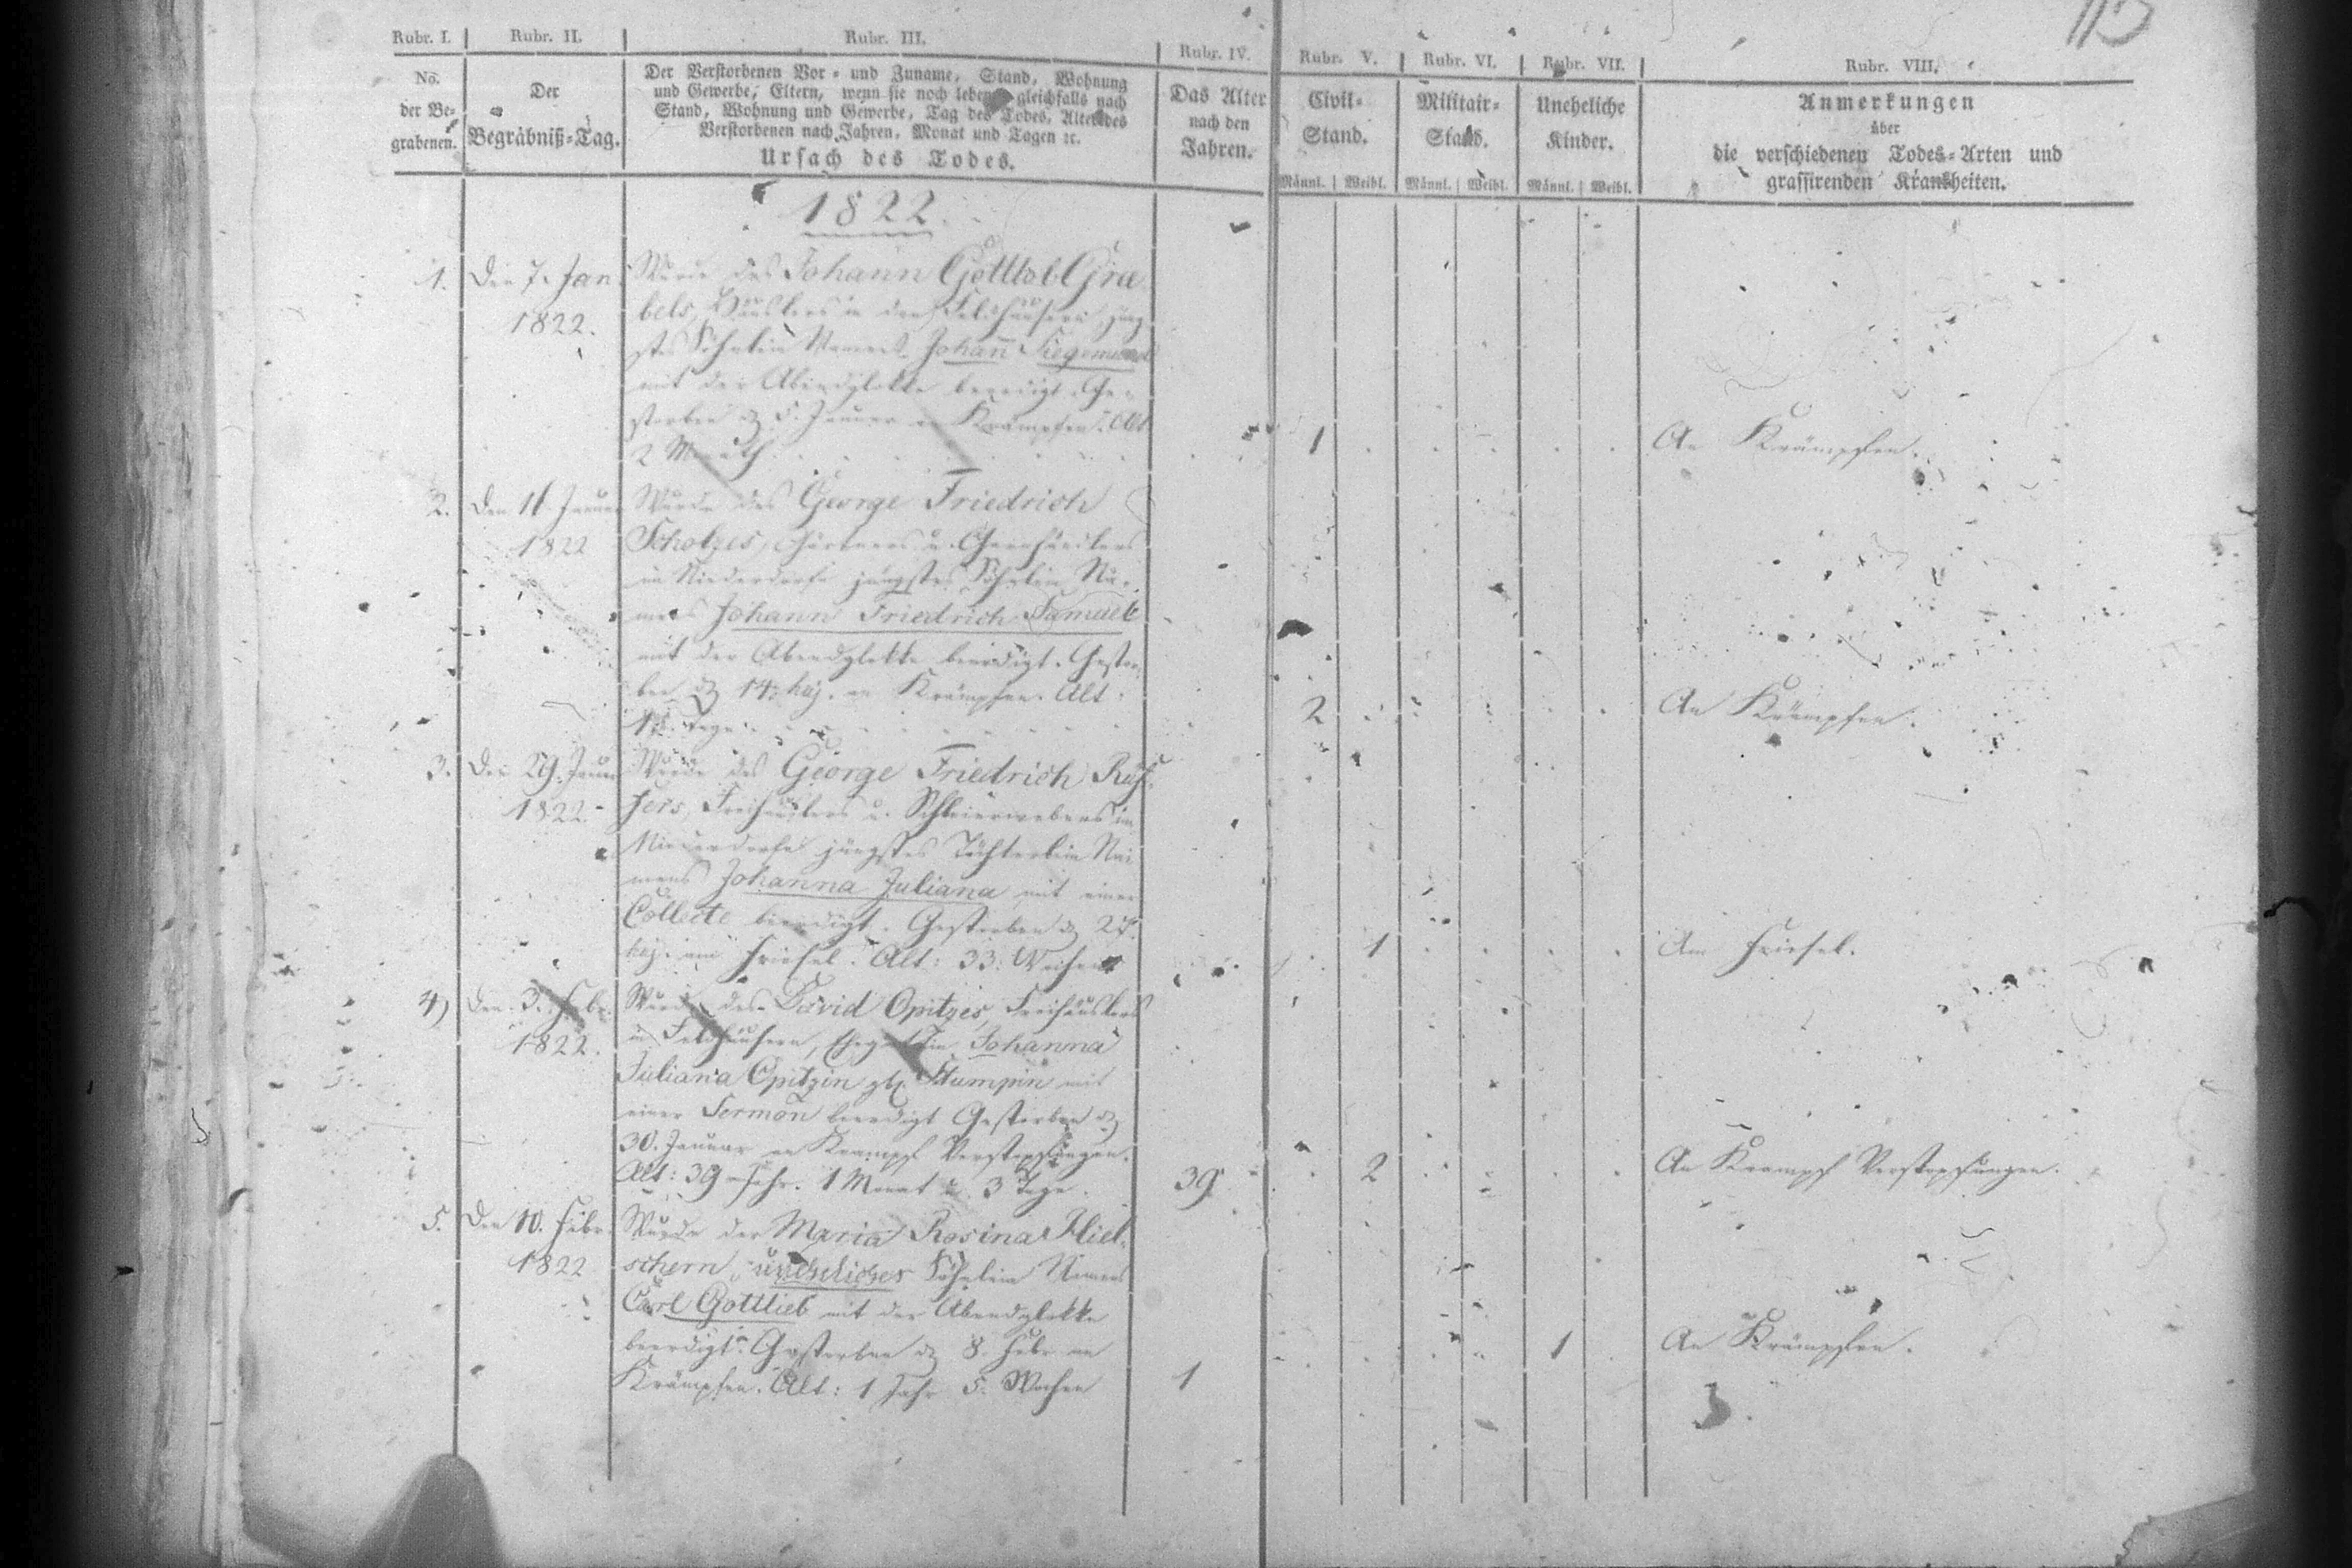 115
Rubr. I. Rubr. II. Rubr. III. Rubr. IV. Rubr. V. Rubr. VI. Rubr. VII. Rubr. VIII.
No.
der Be-
grabenen.
Der
Begräbniß-Tag.
Der Verstorbenen Vor- und Zuname, Stand, Wohnung
und Gewerbe, Eltern, wenn sie noch leben, gleichfalls nach
Stand, Wohnung und Gewerbe, Tag des Todes, Alter des
Verstorbenen nach Jahren, Monat und Tagen ꝛc.
Ursach des Todes.
Das Alter
nach den
Jahren.
Civil-
Stand.
Männl. Weibl.
Militair-
Stand.
Männl. Weibl.
Uneheliche
Kinder.
Männl. Weibl.
Anmerkungen
über
die verschiedenen Todes-Arten und
grassirenden Krankheiten.
1822.
1. Den 7. Jan.
1822.
Wurde des Johann Gottlob Grae
bels, Häuslers in den Feldhäusern jüng
stes Söhnlein Namens Johann Siegemund
mit der Abendglokke beerdigt. Ge-
storben d. 5. Januar an Krämpfen. Alt
2 Month
1 An Krämpfen.
2. Den Januar
1822
Wurde des George Friedrich
Scholzes, Gärtners u. Garnhändlers
im Niederdorfe jüngstes Söhnlein Na-
mens Johann Friedrich Samuel
mit der Abendglokke beerdigt. Gestor-
ben d. 14. huj. an Krämpfen. Alt:
Tage
2 An Krämpfen.
3. Den 29. Januar
1822.
Wurde des George Friedrich
Freihäuslers u. Schleierwebers im
Niederdorfe jüngstes Töchterlein Na-
mens Johanna Juliana mit einer
Collecte beerdigt. Gestorben d.
huj. am Friesel. Alt: 33. Wochen
1 Am Friesel.
4) Den 3. Febr.
1822.
Wurde des David Opitzes, Freihäuslers
in Feldhäusern, Ehegattin Johanna
Juliana Opitzin geb. Stumpin mit
einer Sermon beerdigt Gestorben d.
30. Januar an Krampf Verstopfungen.
Alt: 39 Jahr. 1 Monat u. 3 Tage.
39 2 An Krampf Verstopfungen.
5. Den 10. Febr.
1822
Wurde der Maria Rosina Hiel-
schern, uneheliches Söhnlein Namens
Carl Gottlieb mit der Abendglokke
beerdigt. Gestorben d. 8. Febr. an
Krämpfen. Alt: 1 Jahr 5. Wochen
1 1 An Krämpfen.